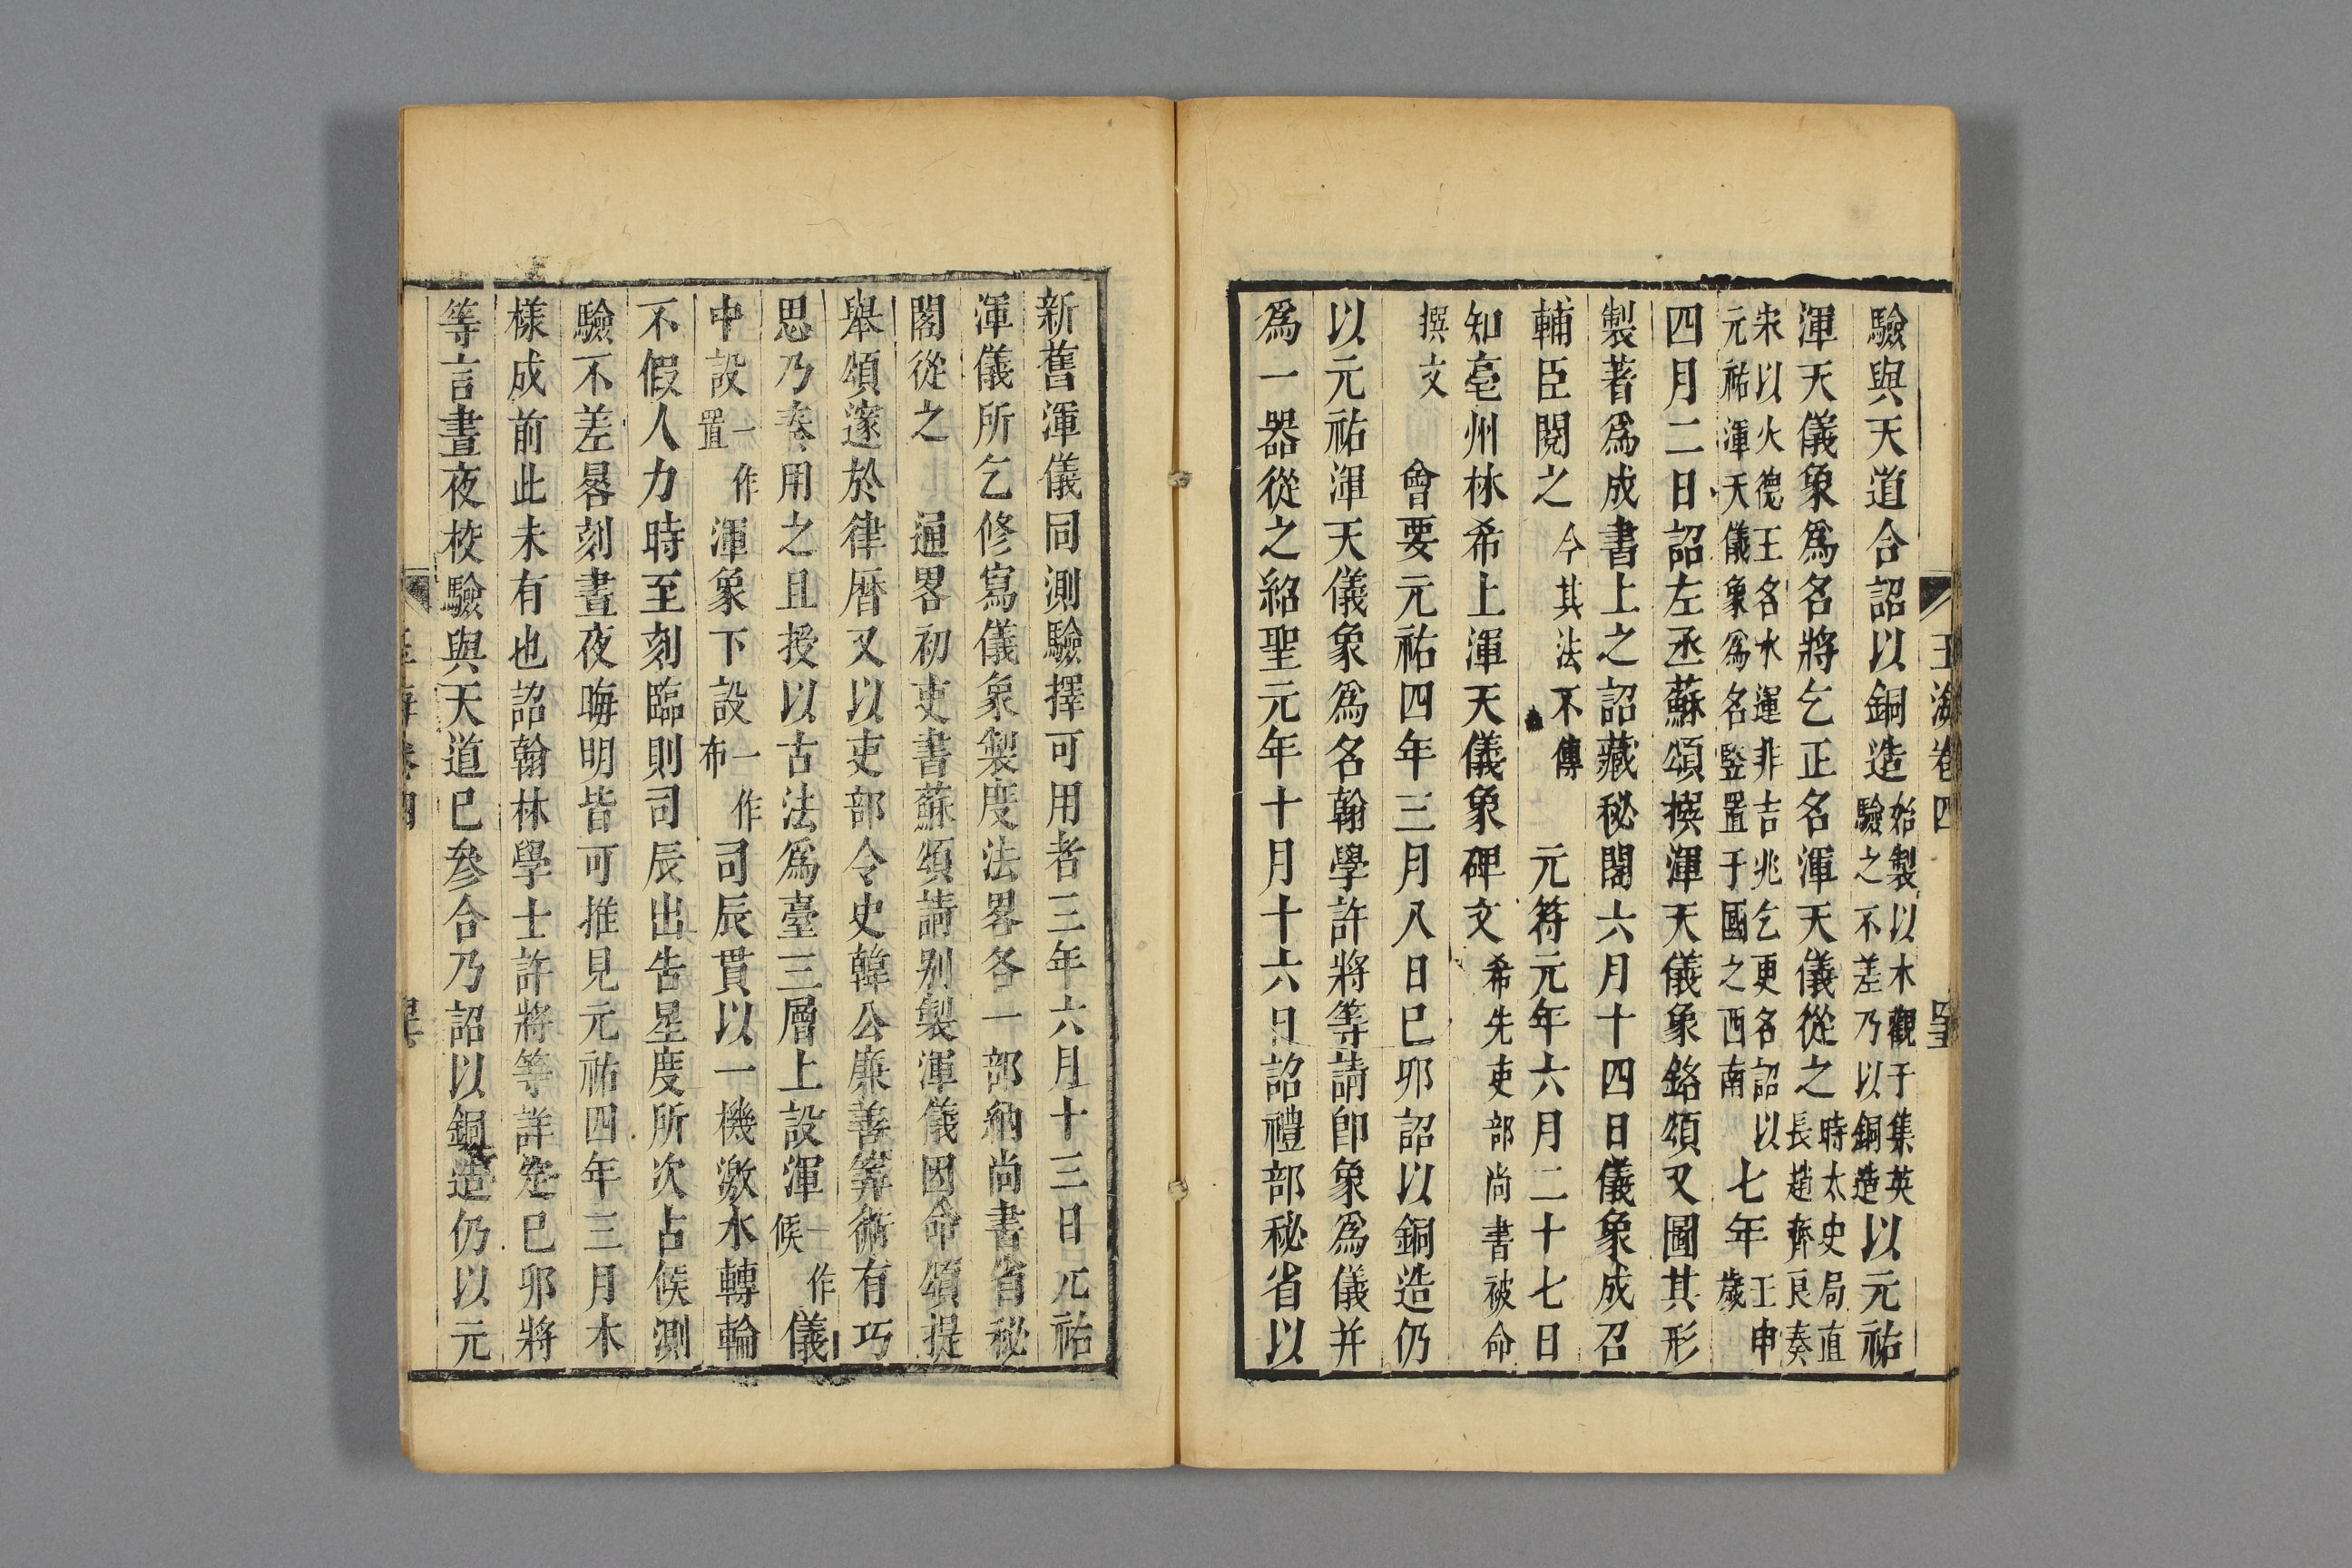 玉海卷四
驗與天道合詔以銅造始製以木觀于集英驗之不差乃以銅造以元祐
渾天儀象爲名將乞正名渾天儀從之時太史局直長趙齊良奏
宋以火德王名水運非吉兆乞更名詔以元祐渾天儀象爲名竪置于國之西南七年壬申歲
四月二日詔左丞蘇頌撰渾天儀象銘頌又圖其形
製著爲成書上之詔藏秘閣六月十四日儀象成召
輔臣閱之今其法不傳元符元年六月二十七日
知亳州林希上渾天儀象碑文希先吏部尚書被命
撰文會要元祐四年三月八日已卯詔以銅造仍
以元祐渾天儀象爲名翰學許將等請卽象爲儀并
爲一器從之紹聖元年十月十六日詔禮部秘省以
新舊渾儀同測驗擇可用者三年六月十三日元祐
渾儀所乞修寫儀象製度法畧各一部納尚書省秘
閣從之通畧初吏書蘇頌請别製渾儀因命頌提
舉頌邃於律曆又以吏部令史韓公廉善筭術有巧
思乃奏用之且授以古法爲臺三層上設渾一作候儀
中設一作置渾象下設一作布司辰貫以一機激水轉輪
不假人力時至刻臨則司辰出告星度所次占候測
驗不差晷刻晝夜晦明皆可推見元祐四年三月木
樣成前此未有也詔翰林學士許將等詳定已卯將
等言晝夜校驗與天道已參合乃詔以銅造仍以元